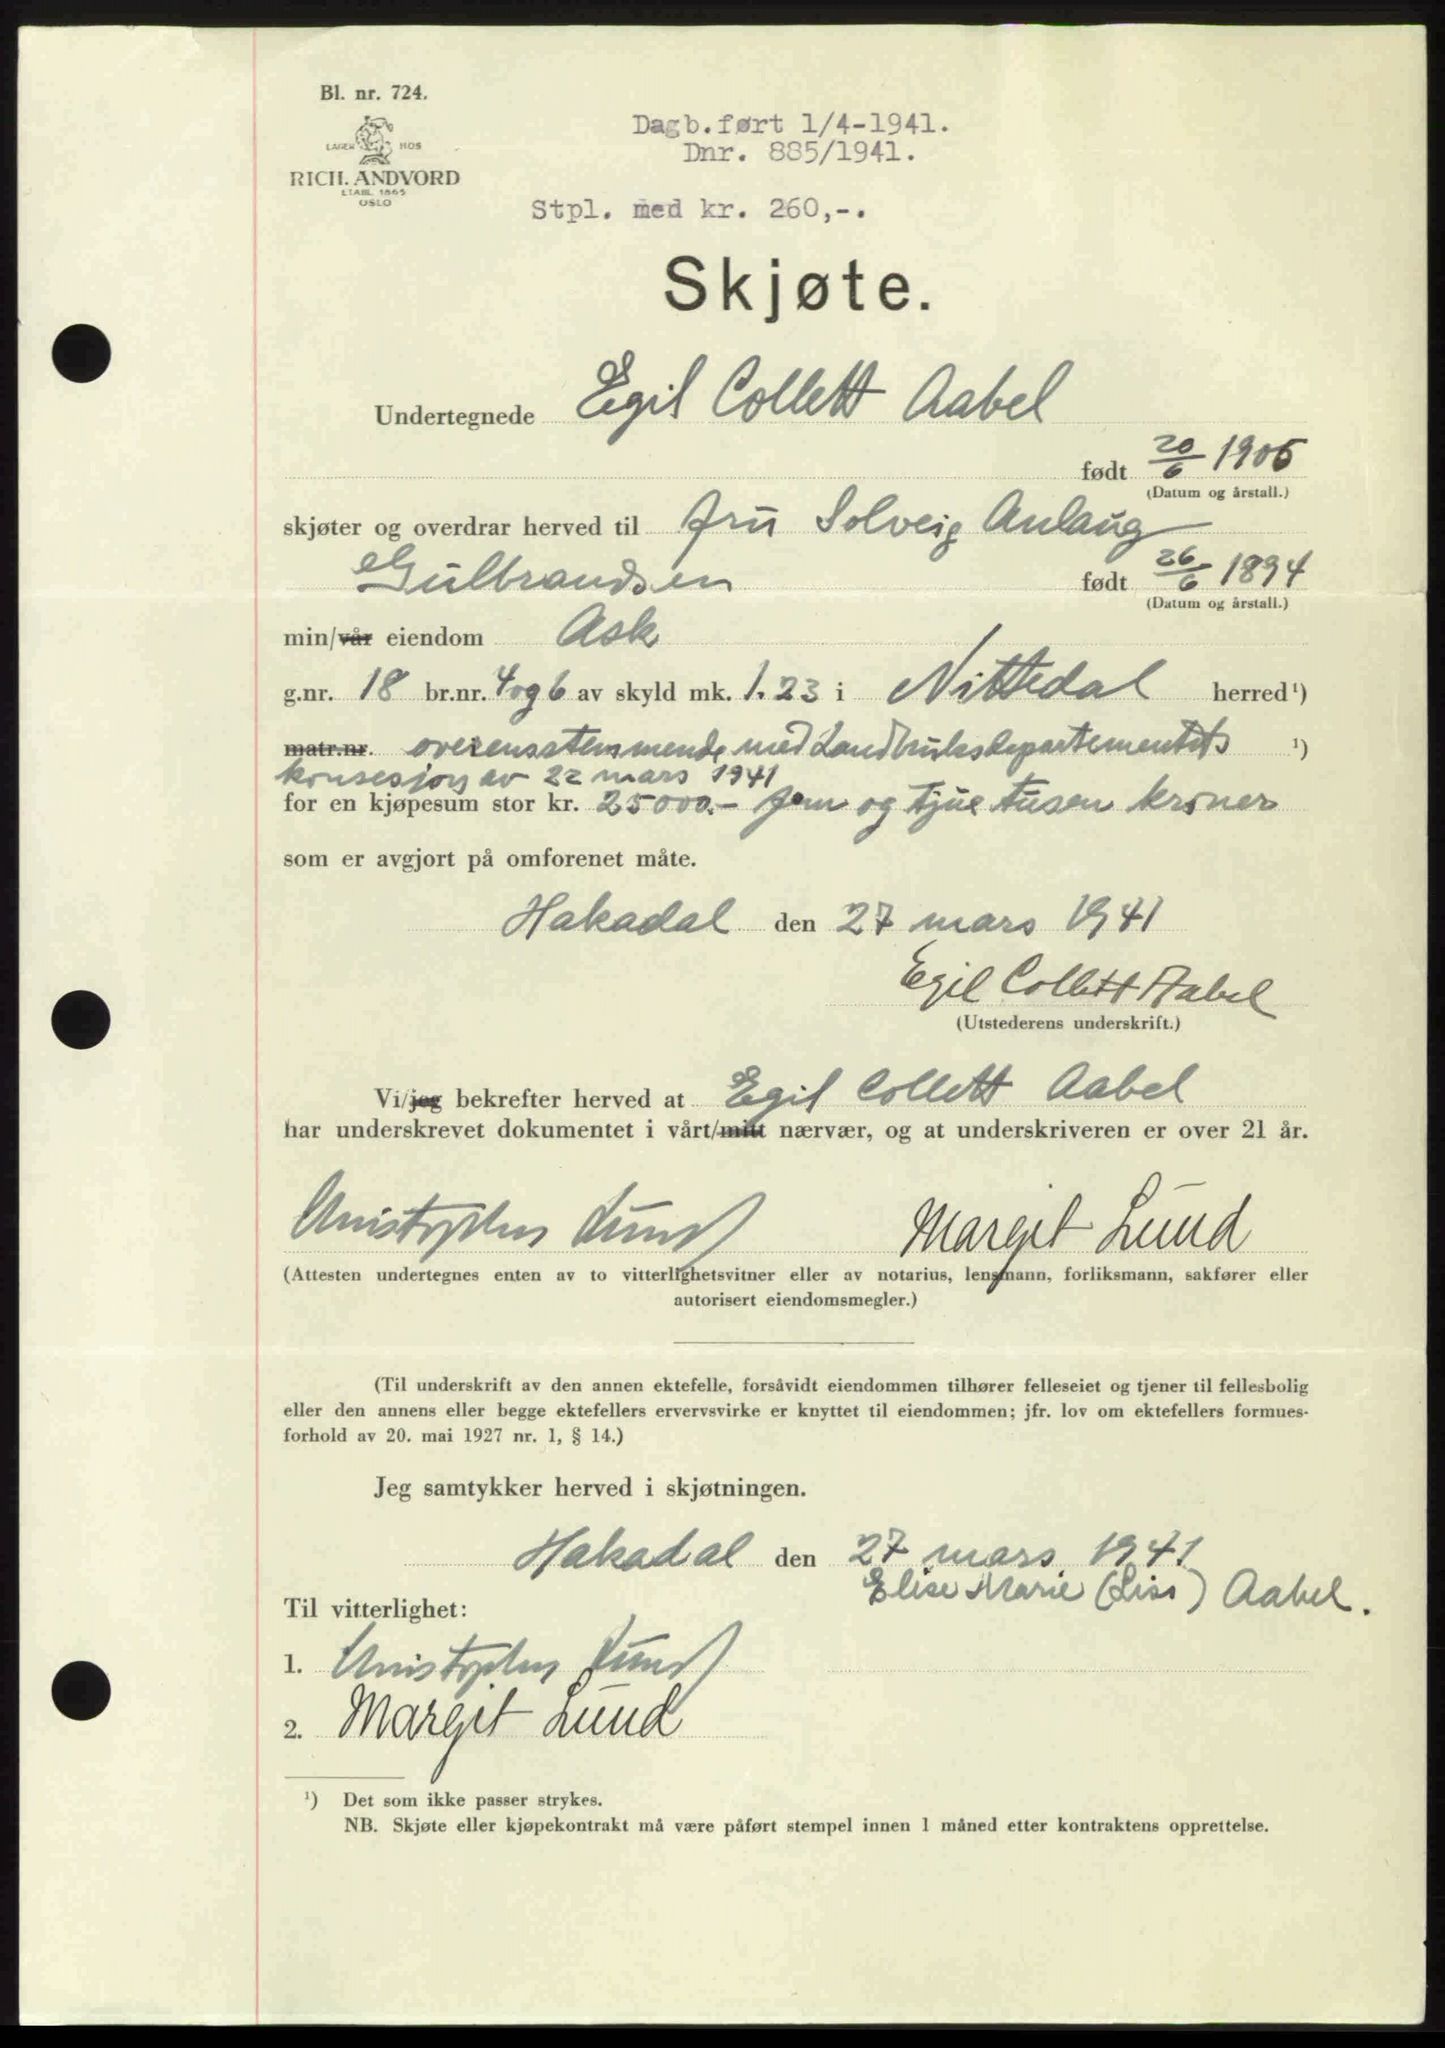 Bl. nr. 724.
LAGER HOS
RICH. ANDVORD
ETABL. 1865
OSLO
Dagb.ført 1/4-1941.
Dnr. 885/1941.
Stpl. med kr. 260,-.
Skjøte.
Undertegnede Egil Collett Aabel
født 20/6 1906
(Datum og årstall.)
skjøter og overdrar herved til fru Solveig Anlaug
Gulbrandsen født 26/6 1894
(Datum og årstall.)
min/vår eiendom Ask
g.nr. 18 br.nr. 4 og 6 av skyld mk. 1.23 i Nittedal herred¹)
matr.nr. overensstemmende med Landbruksdepartementets ¹)
konsesjon av 22 mars 1941
for en kjøpesum stor kr. 25000.- fem og tjue tusen kroner
som er avgjort på omforenet måte.
Hakadal den 27 mars 1941
Egil Collett Aabel
(Utstederens underskrift.)
Vi/jeg bekrefter herved at Egil Collett Aabel
har underskrevet dokumentet i vårt/mitt nærvær, og at underskriveren er over 21 år.
Christopher Lund Margit Lund
(Attesten undertegnes enten av to vitterlighetsvitner eller av notarius, lensmann, forliksmann, sakfører eller
autorisert eiendomsmegler.)
(Til underskrift av den annen ektefelle, forsåvidt eiendommen tilhører felleseiet og tjener til fellesbolig
eller den annens eller begge ektefellers ervervsvirke er knyttet til eiendommen; jfr. lov om ektefellers formues-
forhold av 20. mai 1927 nr. 1, § 14.)
Jeg samtykker herved i skjøtningen.
Hakadal den 27 mars 1941
Elise Marie (Liss) Aabel.
Til vitterlighet:
1. Christopher Lund
2. Margit Lund
¹) Det som ikke passer strykes.
NB. Skjøte eller kjøpekontrakt må være påført stempel innen 1 måned etter kontraktens opprettelse.